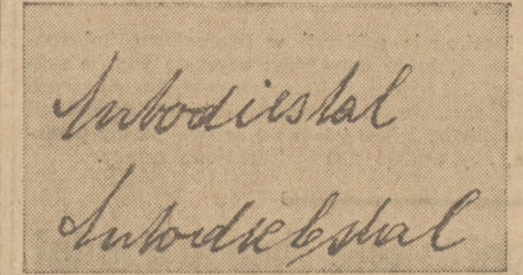 Autodiestal
Autodiebstal